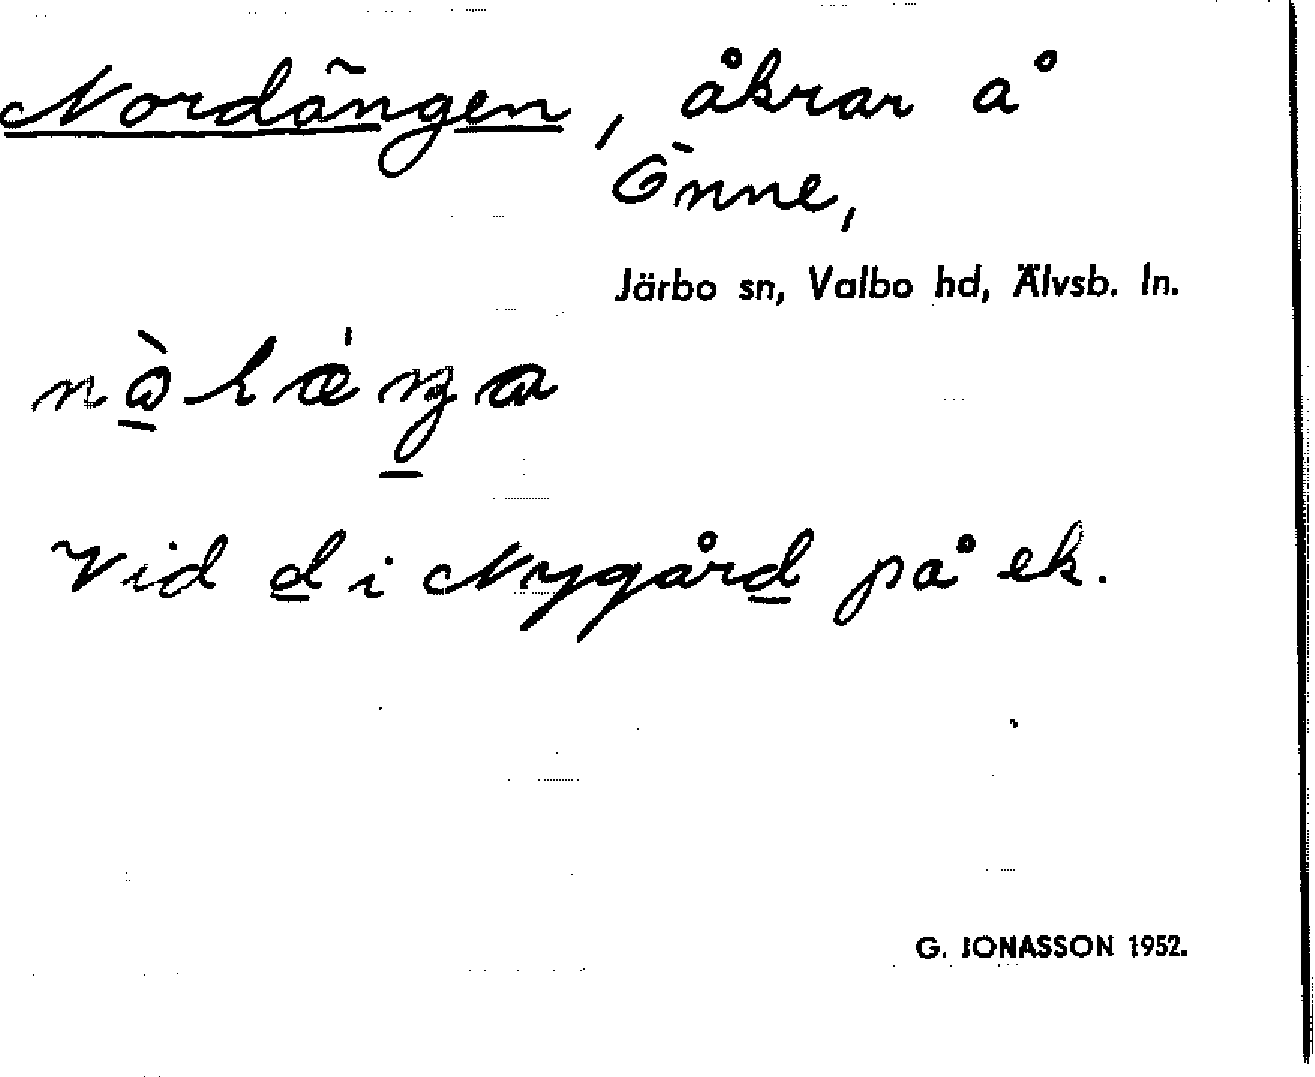 Nordängen, åkrar å
Önne,
Järbo sn, Valbo hd, Älvsb. ln.
Vid d i Nygård på ek.
G. JONASSON 1952.